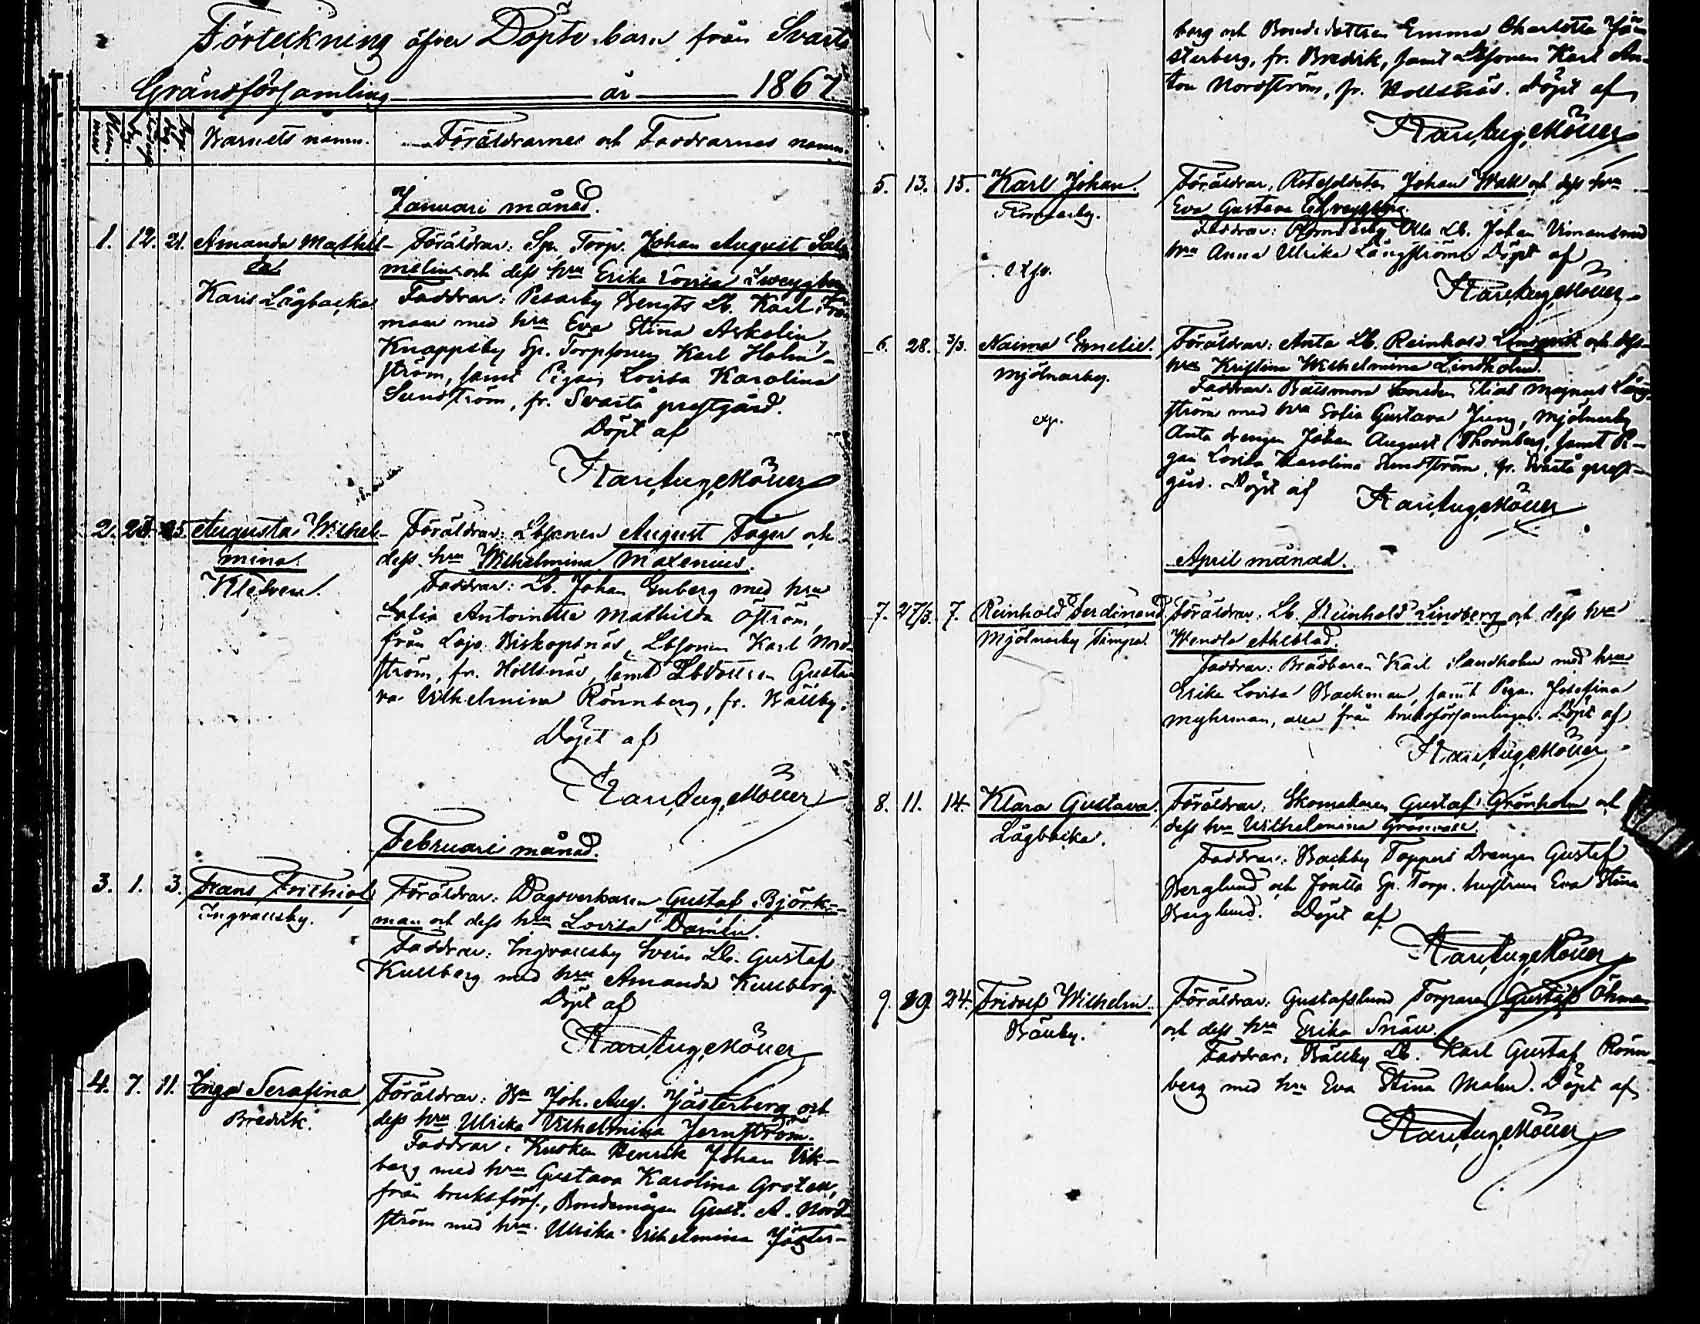 Förteckning öfver Döpte barn från Svartå
Grändförsamling år 1867
Barnets namn. Föräldrarnes och Faddrarnes namn
Januari månad.
1. 12. 21. Amanda Mathil- Föräldrar: Sp. Torp. Johan August Sal-
da
melin och dess hru Erika Lovisa Zweygberg
Karis Lågbacka Faddrar: Pesarby Bengts Lb. Karl
man med hru Eva Stina Askolin,
Knappsby Sp. Torpsonen Karl Holm-
ström, samt Pigan Lovisa Karolina
Sundström, fr. Svartå prestgård.
Döpt af
Karl Aug. Möller
2. 25. Augusta Wilhel- Föräldrar: Lbsonen August Fager och
mina. dess hru Wilhelmina Maxenius.
Klefven. Faddrar: Lb. Johan Enberg med hru
Sofia Antoinetta Mathilda Öström,
från Lojo Biskopsnäs, Lbsonen Karl Nord-
ström, fr. Hollsnäs, samt Lbdottren Gusta-
va Vilhelmina Rönnberg, fr. Bällby.
Döpt af
Karl Aug. Möller
Februari månad.
3. 1. 3. Frans Frithiof Föräldrar: Dagsverkaren Gustaf Björk-
Ingvallsby. man och dess hru Lovisa Damén.
Faddrar: Ingvallsby Svens Lb. Gustaf
Kullberg med hru Amanda Kullberg.
Döpt af
Karl Aug. Möller
4. 7. 11. Inga Serafina Föräldrar: Bn Joh. Aug. Jösterberg och
Bredvik. dess hru Ulrika Vilhelmina Jernström.
Faddrar: Kusken Henrik Johan Vik-
berg med hru Gustava Karolina Grotell,
från bruksförs., Bondemågen Gust. A. Nord-
ström med hru Ulrika Vilhelmina Jöster-
berg och Bondedottren Emma Charlotta Jö-
sterberg, fr. Bredvik, samt Lbsonen Karl An-
ton Nordström, fr. Hollsnäs. Döpt af
Karl Aug. Möller
5. 13. 15. Karl Johan. Föräldrar: Johan Wall och dess hru
Romsarby. Eva Gustava
Faddrar: Romsarby Lb. Johan Vimand med
hru Anna Ulrika Långström. Döpt af
Karl Aug. Möller
6. 28. 3/3. Naima Emelie. Föräldrar: Anta Lb. Reinhold Lindqvist och dess
Mjölnarby. hru Kristina Wilhelmina Lindholm.
Faddrar: Elias Magnus Lång-
ström med hru Sofia Gustava Jung, Mjölnarby
Anta drengen Johan August Thornberg, samt Pi-
gan Lovisa Karolina Sundström, fr. Svartå prest-
gård. Döpt af Karl Aug. Möller
April månad.
7. 27/3. 7. Reinhold Ferdinand Föräldrar: Lb. Reinhold Lindberg och dess hru
Mjölnarby Wendla Ahlblad.
Faddrar: Karl Sandholm med hru
Erika Lovisa Backman, samt Pigan Josefina
Myhrman, alla från bruksförsamlingen. Döpt af
Karl Aug. Möller
8. 11. 14. Klara Gustava. Föräldrar: Skomakaren Gustaf Grönholm och
Lågbacka. dess hru Wilhelmina
Faddrar: Backby Toppers Drengen Gustaf
Berglund och Joutta Sp. Torp. hustrun Eva Stina
Berglund. Döpt af
Karl Aug. Möller
9. 19. 24. Fridolf Wilhelm. Föräldrar: Gustafslund Torparen Gustaf Öhman
Bällby. och dess hru Erika Snäll.
Faddrar: Bällby Lb. Karl Gustaf Rönn-
berg med hru Eva Stina Malm. Döpt af
Karl Aug. Möller